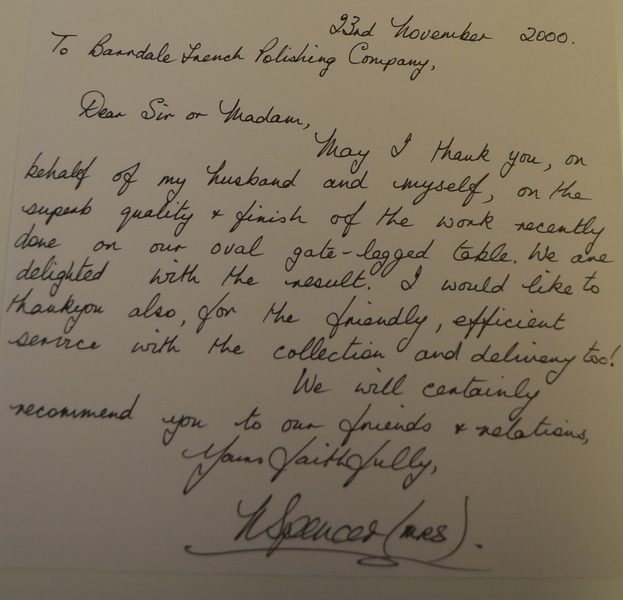 23rd November 2000.
To Barrdale French Polishing Company,
Dear Sir or Madam,
May I thank you, on
behalf of my husband and myself, on the
superb quality & finish of the work recently
done on our oval gate-legged table. We are
delighted with the result. I would like to
thankyou also, for the friendly, efficient
service with the collection and delivery too!
We will certainly
recommend you to our friends & relations,
Yours faithfully,
N Spencer (MRS).